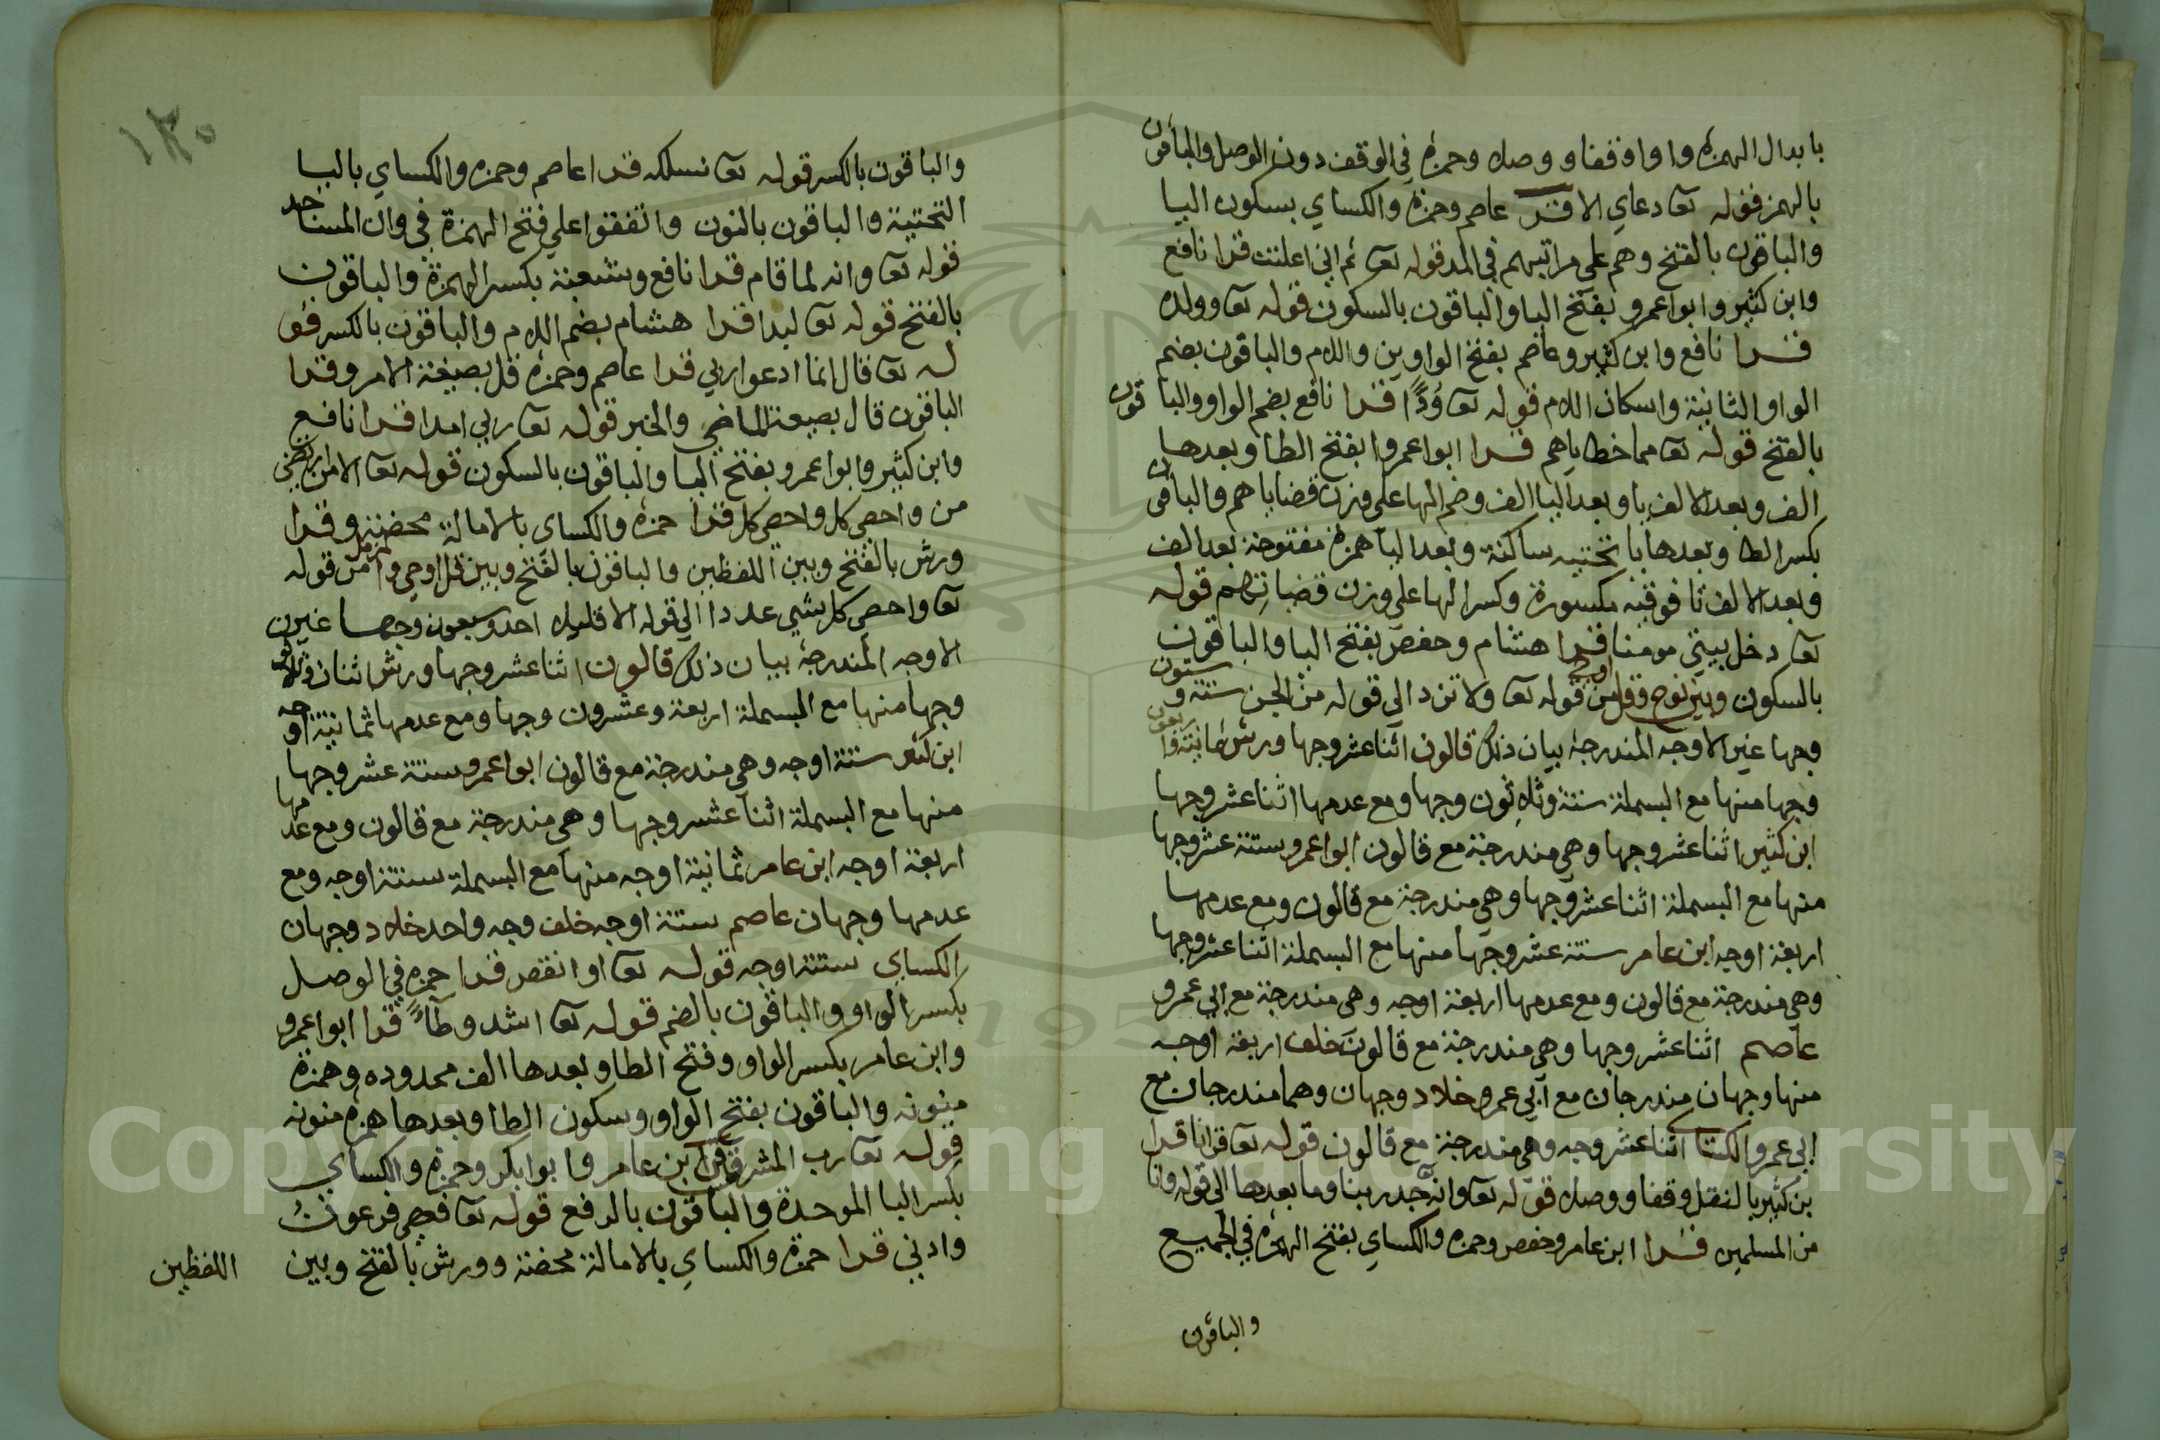 بابدال الهمزة واوا وقفا ووصلا وحمزة في الوقف دون الوصل والباقون
بالهمز قوله تعا دعاي الا قرا عاصم وحمزة والكساي بسكون اليا
والباقون بالفتح وهم علي مراتبهم في المد قوله تعا ثم اني اعلنت قرا نافع
وابن كثير وابو اعمرو بفتح اليا والباقون بالسكون قوله تعا وولده
قرا نافع وابن كثير وعاصم بفتح الواوين واللام والباقون بضم
الواو الثانية واسكان اللام قوله تعا وُدًّا قرا نافع بضم الواو والباقون
بالفتح قوله تعا مما خطاياهم قرا ابوا عمروا بفتح الطا وبعدها
الف وبعد الالف يا وبعد اليا الف وضم الها علي وزن قضاياهم والباقون
بكسر الطا وبعدها يا تحتيه ساكنة وبعد اليا همزة مفتوحة بعد الف
وبعد الالف تا فوقيه مكسورة وكسر الها علي وزن قضياتهم قوله
تعا دخل بيتي مومنا قرا هشام وحفص بفتح اليا والباقون
بالسكون وبين نوح وقل اوحي من قوله تعا ولا تزد الي قوله من الجن ستة وستون
وجها غير الاوجه المندرجة بيان ذلك قالون اثنا عشر وجها ورش ثمانية واربعون
وجها منها مع البسملة ستة وثلاثون وجها ومع عدمها اثنا عشر وجها
ابن كثير اثنا عشر وجها وهي مندرجة مع قالون ابوا عمرو ستة عشر وجها
منها مع البسملة اثنا عشر وجها وهي مندرجة مع قالون ومع عدمها
اربعة اوجه ابن عامر ستة عشر وجها منها مع البسملة اثنا عشر وجها
وهي مندرجة مع قالون ومع عدمها اربعة اوجه وهي مندرجة مع ابي عمرو
عاصم اثنا عشر وجها وهي مندرجة مع قالون خلف اربعة اوجه
منها وجهان مندرجان مع ابي عمرو خلاد وجهان وهما مندرجان مع
ابي عمرو الكسا اثنا عشر وجه وهي مندرجة مع قالون قوله تعا قرانا قرا
بن كثير بالنقل وقفا ووصلا قوله تعا وانه جد ربنا وما بعدها الي قوله وانا
من المسلمين قرا ابن عامر وحفص وحمزه والكساي بفتح الهمزة في الجميع
والباقون
١٣٠
والباقون بالكسر قوله تعا نسلكه قرا عاصم وحمزه والكساي باليا
التحتية والباقون بالنون واتفقوا علي فتح الهمزة في وان المساجد
قوله تعا وانه لما قام قرا نافع وشعبة بكسر الهمزة والباقون
بالفتح قوله تعا لبدا قرا هشام بضم اللام والباقون بالكسر قو
له تعا قال انما ادعوا ربي قرا عاصم وحمزة قل بصيغة الامر وقرا
الباقون قال بصيغة الماضي والخبر قوله تعا ربي امدا قرا نافع
وابن كثير وابوا عمرو بفتح اليا والباقون بالسكون قوله تعا الا من ارتضي
من واحصي كل واحصي كل قرا حمزة والكساي بالامالة محضة وقرا
ورش بالفتح وبين اللفظين والباقون بالفتح وبين قل اوحي والمزمل من قوله
تعا واحصي كل شي عددا الي قوله الا قليلا احد وسبعون وجها غير
الاوجه المندرجة بيان ذلك قالون اثنا عشر وجها ورش اثنان وثلاثون
وجها منها مع البسملة اربعة وعشرون وجها ومع عدمها ثمانية اوجه
ابن كثير ستة اوجه وهي مندرجة مع قالون ابوا عمرو ستة عشر وجها
منها مع البسملة اثنا عشر وجها وهي مندرجة مع قالون ومع عدمها
اربعة اوجه ابن عامر ثمانية اوجه منها مع البسملة ستة اوجه ومع
عدمها وجهان عاصم ستة اوجه خلف وجه واحد خلاد وجهان
الكساي ستة اوجه قوله تعا او انقص قرا حمزه في الوصل
بكسر الواو والباقون بالضم قوله تعا اشد وطآءً قرا ابوا عمرو
وابن عامر بكسر الواو وفتح الطا وبعدها الف ممدوده وهمزة
منونه والباقون بفتح الواو وسكون الطا وبعدها همزه منونه
قوله تعا رب المشرق قرا بن عامر وابوا بكر وحمزة والكساي
بكسر البا الموحدة والباقون بالرفع قوله تعا فعصي فرعون
وادني قرا حمزة والكساي بالامالة محضة وورش بالفتح وبين
اللفظين